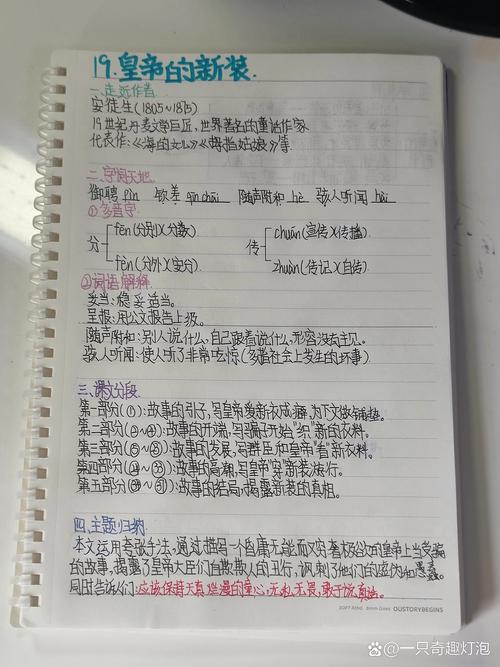 19.皇帝的新装.
一.走近作者
安徒生(1805~1875)
19世纪丹麦文学巨匠,世界著名的童话作家
代表作:《海的女儿》《拇指姑娘》等.
二.字词天地
御聘 pìn 钦差 qīn chāi 随声附和 hè 骇人听闻 hài
①多音字
分 fēn(分别)(分数)
fèn(分外)(安分)
传 chuán(宣传)(传播)
zhuàn(传记)(自传)
②词语解释
妥当:稳妥适当。
呈报:用公文报告上级。
随声附和:别人说什么,自己跟着说什么,形容没有主见。
骇人听闻:使人听了非常吃惊(多指社会上发生的坏事)
三.课文分段
第一部分(①):故事的引子,写皇帝爱新衣成癖,为下文做铺垫。
第二部分(②~④):故事的开端,写骗子开始"织"新的衣料。
第三部分(⑤~):故事的发展,写群臣和皇帝"看"新衣料。
第四部分(~㉝):故事的高潮,写皇帝"穿"新装游行。
第五部分:故事的结局,揭露新装的真相。
四.主题归纳
本文运用夸张手法,通过描写一个昏庸无能而又穷奢极欲的皇帝上当受骗
的故事,揭露了皇帝大臣们自欺欺人的丑行,讽刺了他们的虚伪和愚蠢。
同时告诉们:应该保持天真烂漫的童心,无私无畏,敢于说真话。
SOFT Alife 8mm·Lines OUSTORYBEGINS
@一只奇趣灯泡